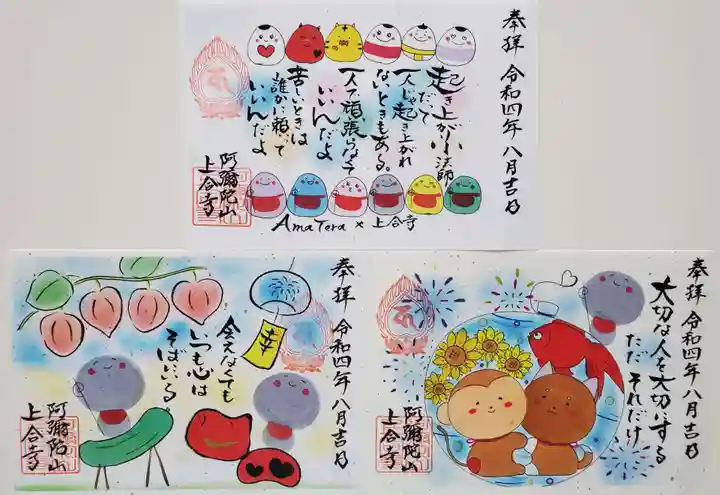 奉拝 令和四年八月吉日
起き上がり小法師
だって
一人じゃ起き上がれ
ないときもある。
一人で頑張らなくて
いいんだよ
苦しいときは
誰かに頼って
いいんだよ
阿彌陀山
上合寺
AmaTera × 上合寺
奉拝 令和四年八月吉日
幸
会えなくても
いつも心は
そばにいる。
阿彌陀山
上合寺
奉拝 令和四年八月吉日
大切な人を大切にする
ただそれだけ
阿彌陀山
上合寺